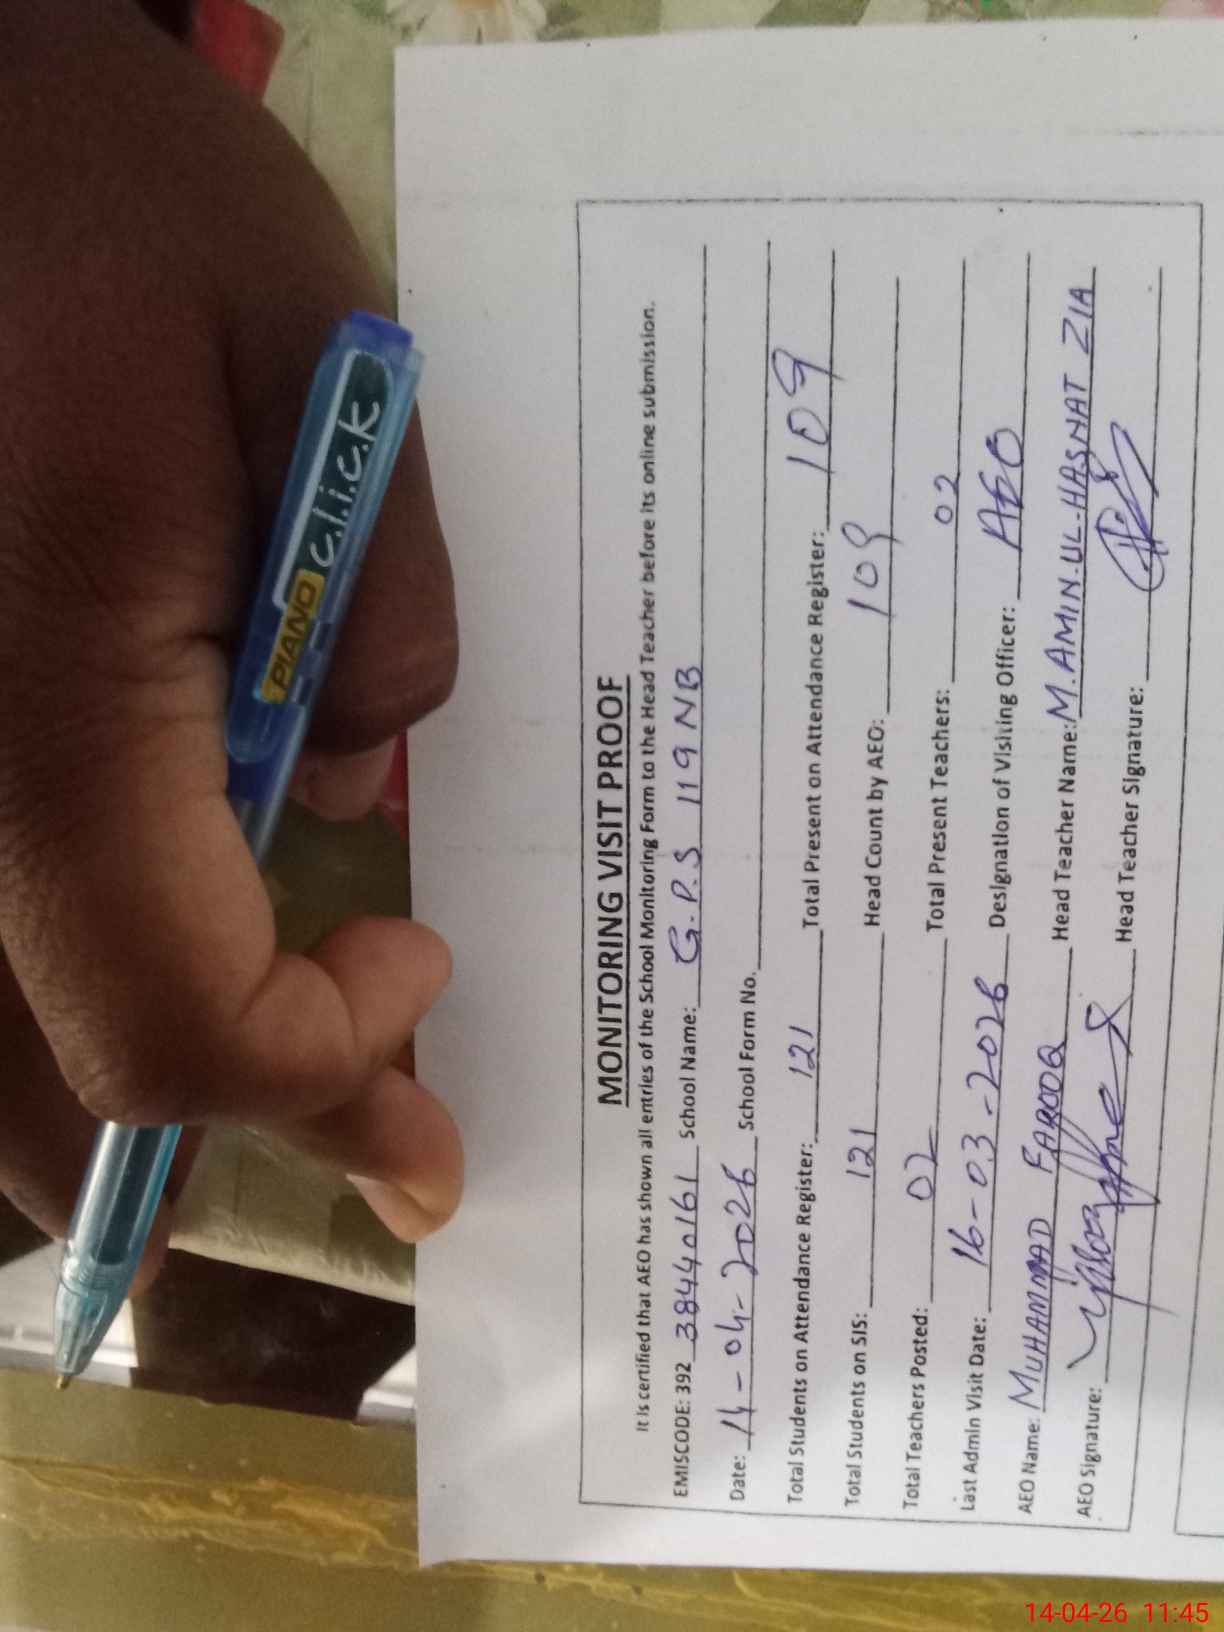 MONITORING VISIT PROOF
It is certified that AEO has shown all entries of the School Monitoring Form to the Head Teacher before its online submission.
EMISCODE: 392 38440161 School Name: G.P.S 119 NB
Date: 14-04-2026 School Form No.
Total Students on Attendance Register: 121 Total Present on Attendance Register: 109
Total Students on SIS: 121 Head Count by AEO: 109
Total Teachers Posted: 02 Total Present Teachers: 02
Last Admin Visit Date: 16-03-2026 Designation of Visiting Officer: AEO
AEO Name: MUHAMMAD FAROOQ Head Teacher Name: M.AMIN.UL.HASNAT ZIA
AEO Signature: Head Teacher Signature:
PIANO c.l.i.c.k
14-04-26 11:45